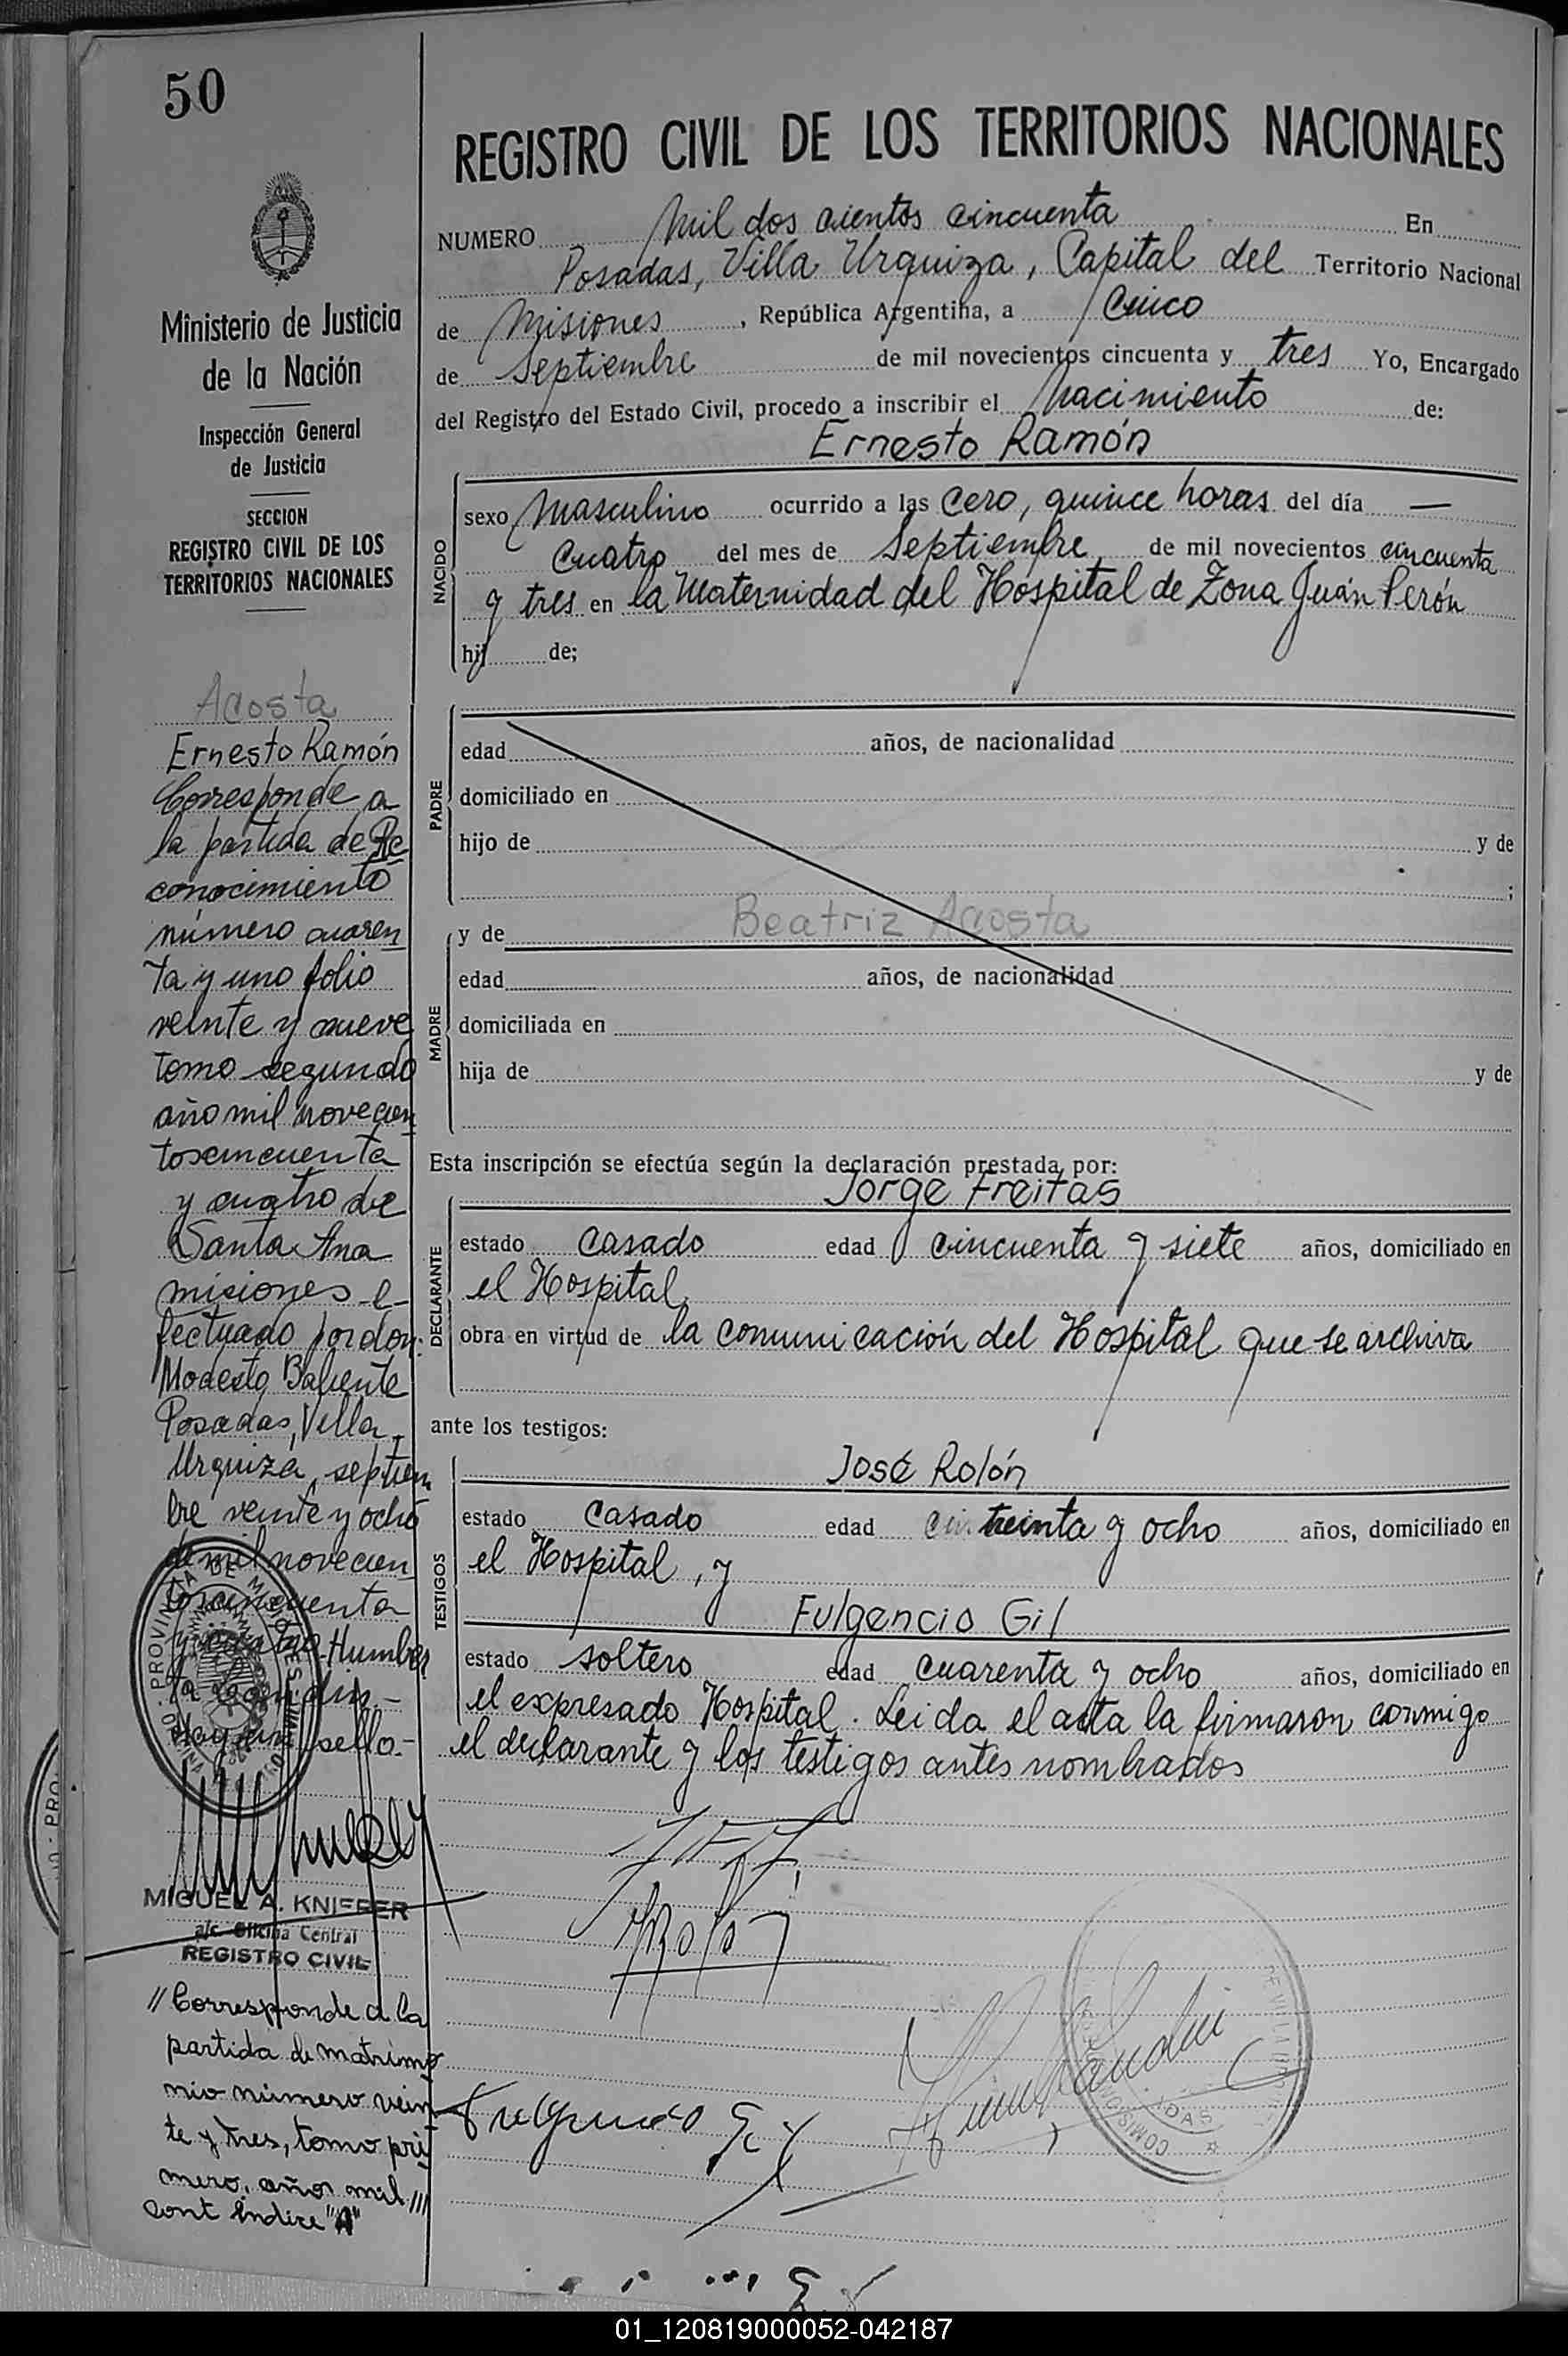 50
REGISTRO CIVIL DE LOS TERRITORIOS NACIONALES
NUMERO Mil dos cientos cincuenta En
Posadas, Villa Urquiza, Capital del Territorio Nacional
de Misiones, República Argentina, a Cinco
de Septiembre de mil novecientos cincuenta y tres Yo, Encargado
del Registro del Estado Civil, procedo a inscribir el Nacimiento de:
Ernesto Ramón
NACIDO
sexo Masculino ocurrido a las Cero, quince horas del día —
Cuatro del mes de Septiembre de mil novecientos cincuenta
y tres en la Maternidad del Hospital de Zona Juán Perón
hij de;
PADRE
edad años, de nacionalidad
domiciliado en
hijo de y de
;
MADRE
y de Beatriz Acosta
edad años, de nacionalidad
domiciliada en
hija de y de
Esta inscripción se efectúa según la declaración prestada por:
Jorge Freitas
DECLARANTE
estado Casado edad cincuenta y siete años, domiciliado en
el Hospital
obra en virtud de la comunicación del Hospital que se archiva
ante los testigos:
José Rolón
TESTIGOS
estado Casado edad treinta y ocho años, domiciliado en
el Hospital, y
Fulgencio Gil
estado soltero edad cuarenta y ocho años, domiciliado en
el expresado Hospital. Leida el acta la firmaron conmigo
el declarante y los testigos antes nombrados
Fulgencio Gil
Ministerio de Justicia
de la Nación
Inspección General
de Justicia
SECCION
REGISTRO CIVIL DE LOS
TERRITORIOS NACIONALES
Acosta
Ernesto Ramón
Corresponde a
la partida de Re
conocimiento
número cuaren
ta y uno folio
veinte y nueve
tomo segundo
año mil novecien
tos cincuenta
y cuatro de
Santa Ana
misiones e-
fectuado por don:
Modesto Baliente
Posadas, Villa
Urquiza, septiem
bre veinte y ocho
de mil novecien
tos cincuenta
y cuatro Humber
to
Hay un sello.-
PROVINCIA DE MISIONES
MIGUEL A. KNIFFER
a/c. Oficina Central
REGISTRO CIVIL
// Corresponde a la
partida de matrimo
nio número vein
te y tres, tomo pri
mero, año mil ///
cont Indice "A"
01_120819000052-042187